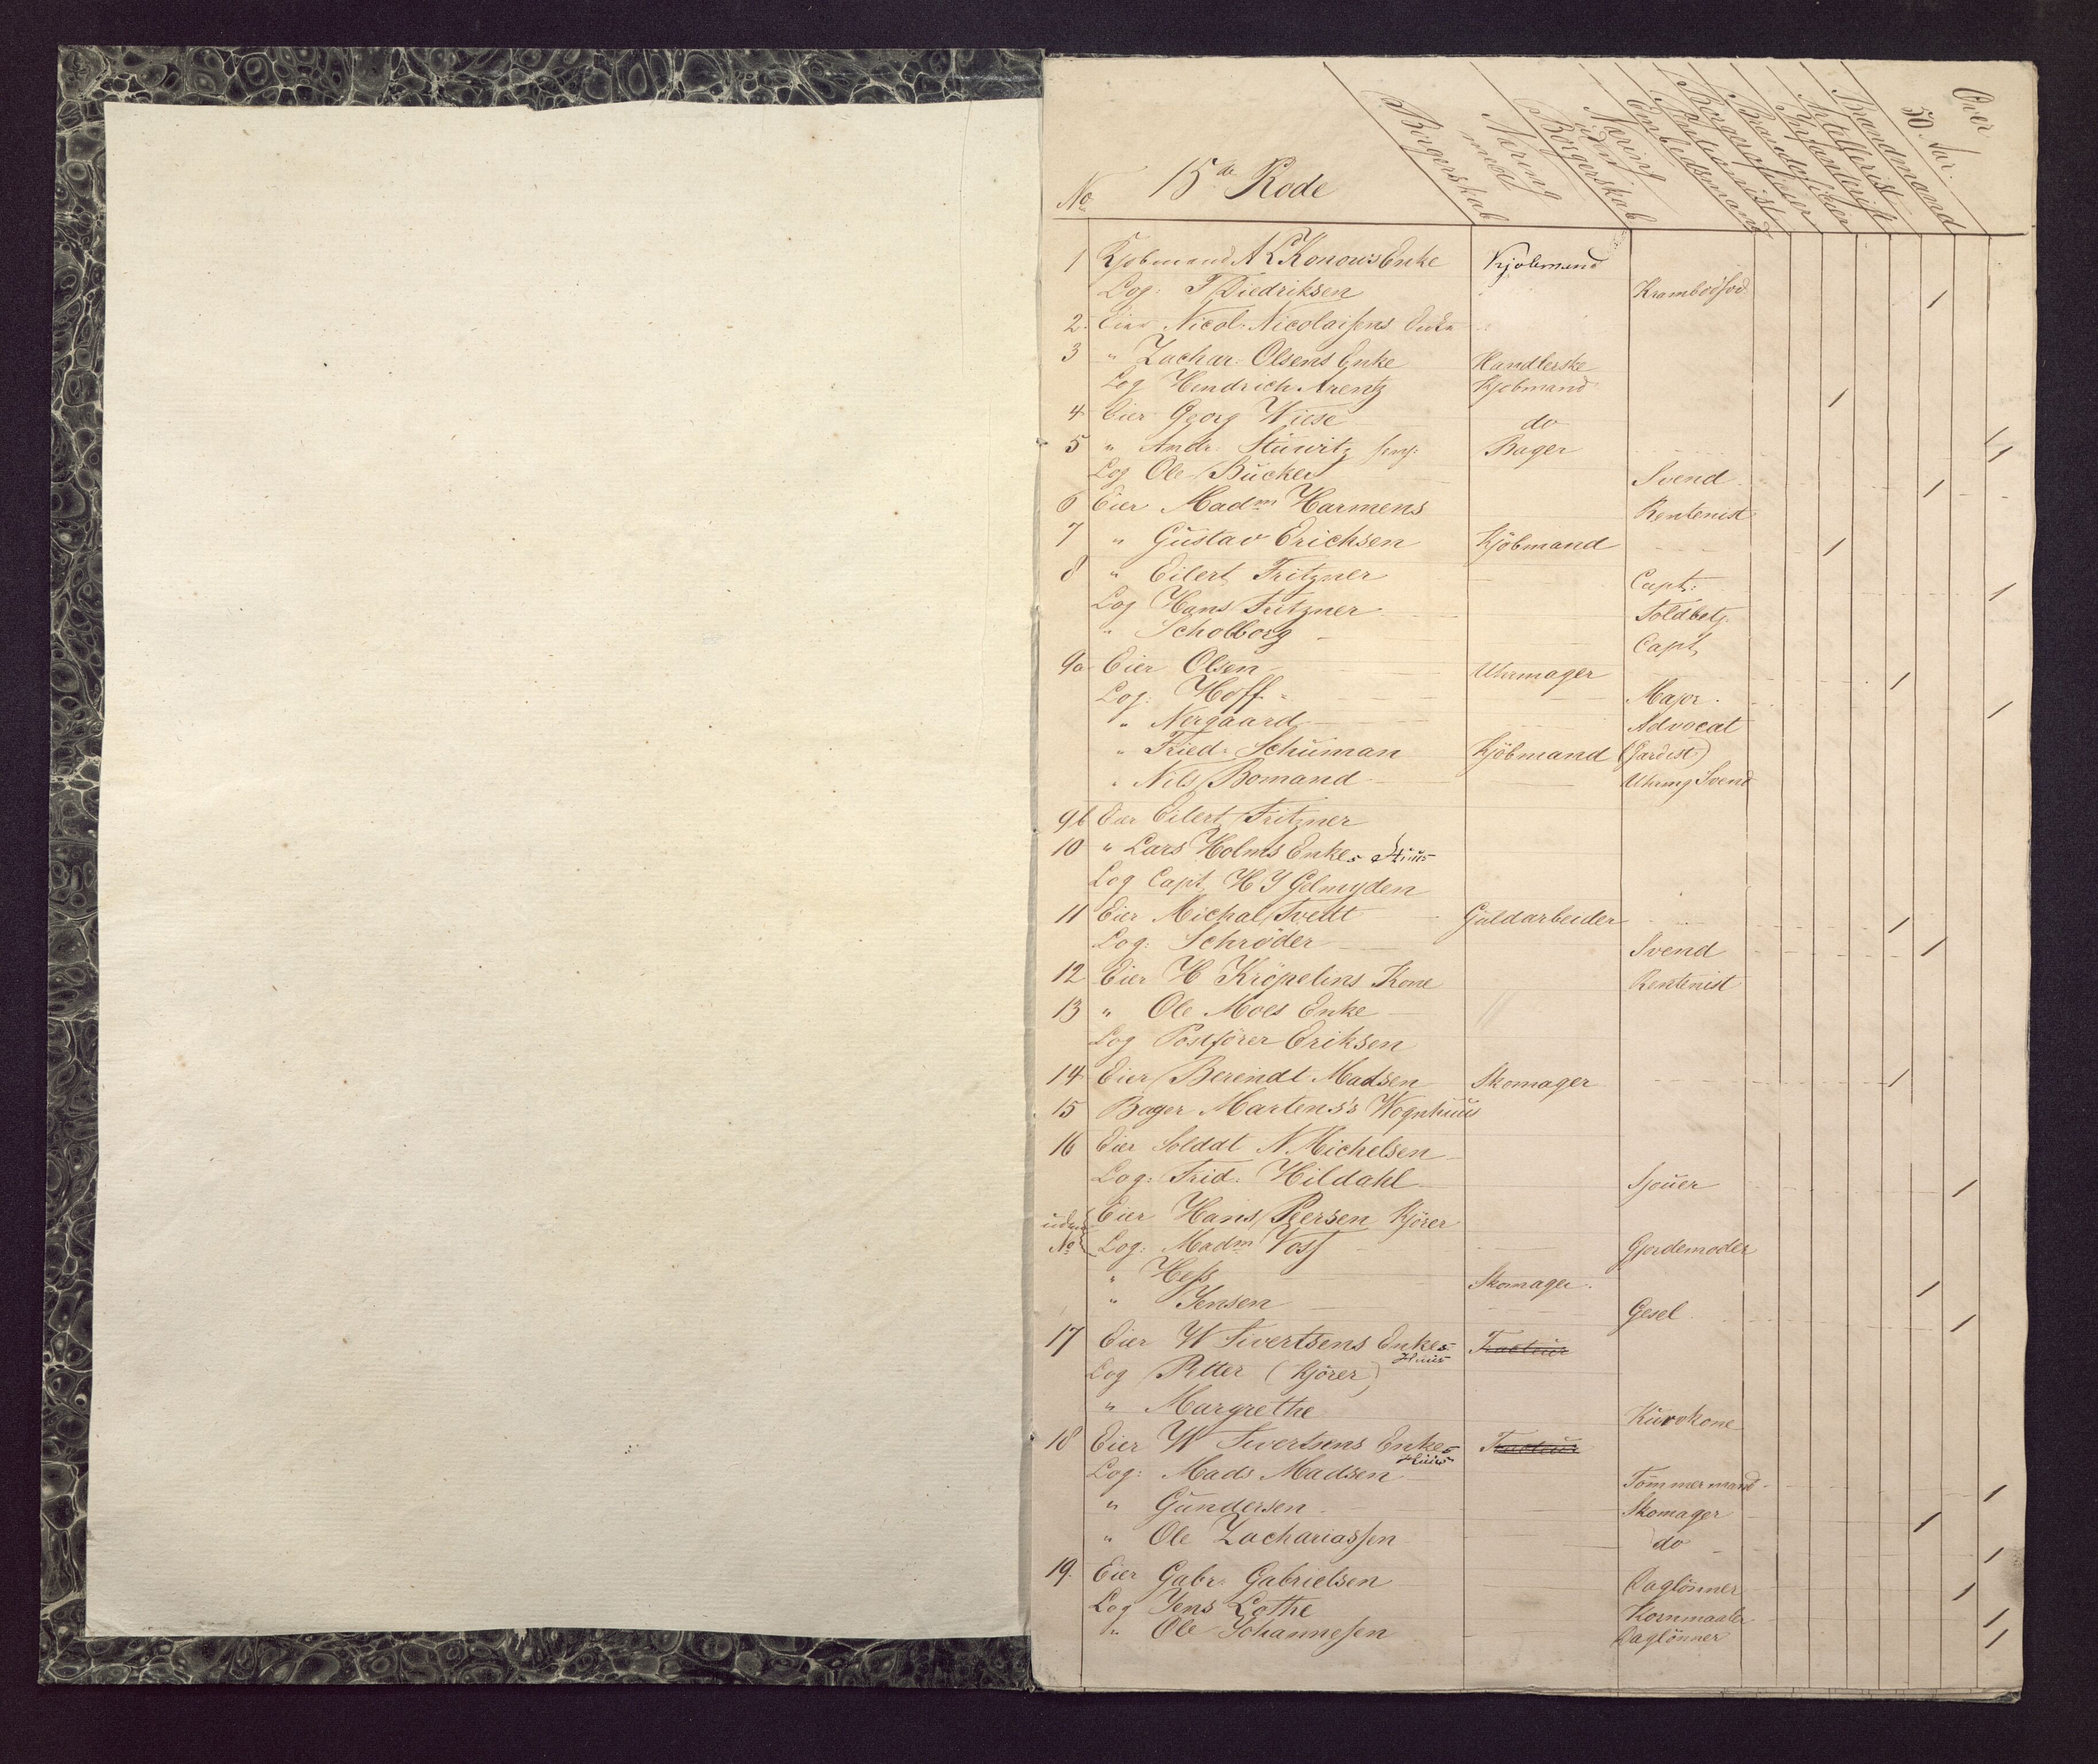 Over
50 Aar.
Brandmænd
Artillerist
Infanterist
Brandofficier
Borgerofficier
Embedsmænd
Næring uden Borgerskab
Næring med Borgerskab
No 15de Rode
1 Kjøbmand A K Konows Enke Kjøbmand
Log: T Diedriksen Krambodsvd /
2. Eier Nicol. Nicolaisens Enke
3 " Zachar. Olsens Enke Handlerske
Log Hendrich Arentz Kjøbmand /
4 Eier Georg Wiese do /
5 " Andr: Stüwitz senj: Bager /
Log Ole Bücher Svend /
6 Eier Madm Harmens Rentenist
7 " Güstav Erichsen Kjöbmand /
8 " Eilert Fritzner Capt: /
Log Hans Fritzner Toldbetj
" Scholborg Capt
9a Eier Olsen Uhrmager /
Log: Hoff Major /
" Nergaard Advocat
" Fried: Schüman Kjöbmand (Gardist)
" Nils Bomand Uhrmg Svend
9b Eier Eilert Fritzner
10 " Lars Holms Enkes Hüüs
Log Capt. H J Gelmyden
11 Eier Michal Tvedt Güldarbeider /
Log: Schröder Svend /
12 Eier H Kröpelins Kone Rentenist
13 " Ole Moes Enke
Log Postförer Eriksen
14 Eier Berendt Madsen Skomager /
15 Bager Martens's Wognhüüs
16 Eier Soldat N Michelsen
Log: Frid: Hildahl Sjouer /
üden No Eier Hans Peersen Kjörer
Log: Madm Voss Gjordemoder
" Hess Skomager /
" Jensen Gesel /
17 Eier W Sivertsens Enkes Hüüs Tracteür
Log Petter (Kjörer)
" Margrethe Kürvkone
18 Eier W Sivertsens Enkes Hüüs Tracteür
Log: Mads Madsen Tömmermand /
" Gündersen Skomager /
" Ole Zachariassen do /
19. Eier Gabr. Gabrielsen Daglönner /
Log Jens Lothe Kornmaaler /
" Ole Johannesen Daglönner /